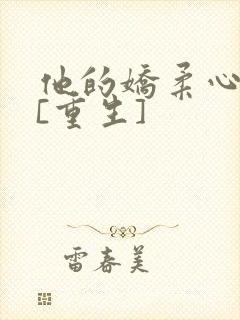 他的娇柔心
[重生]
雷春美